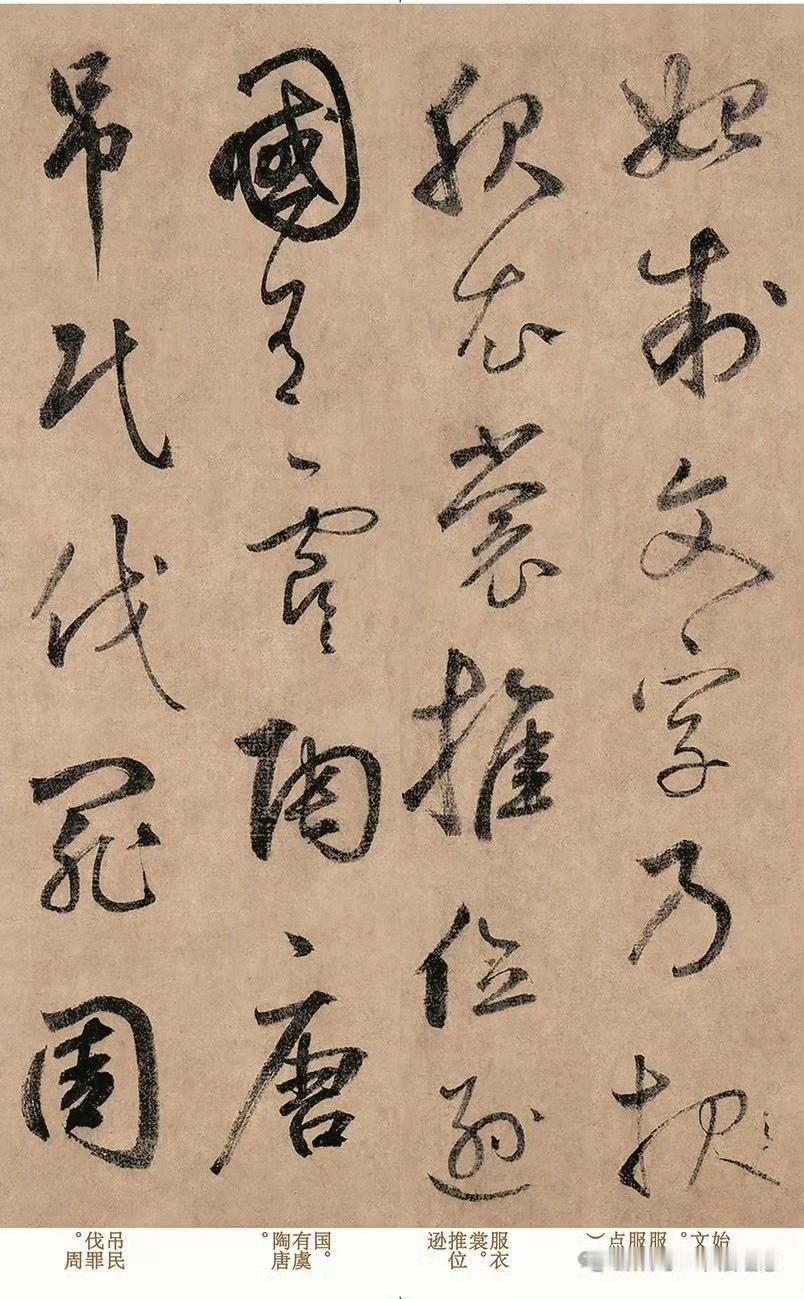 始制文字乃服
服衣裳推位遜
國有虞陶唐
吊民伐罪周
始
文
。服
服
点
）
服衣
裳。
推位
逊
国。
有虞
陶唐
。
吊民
伐罪
。周